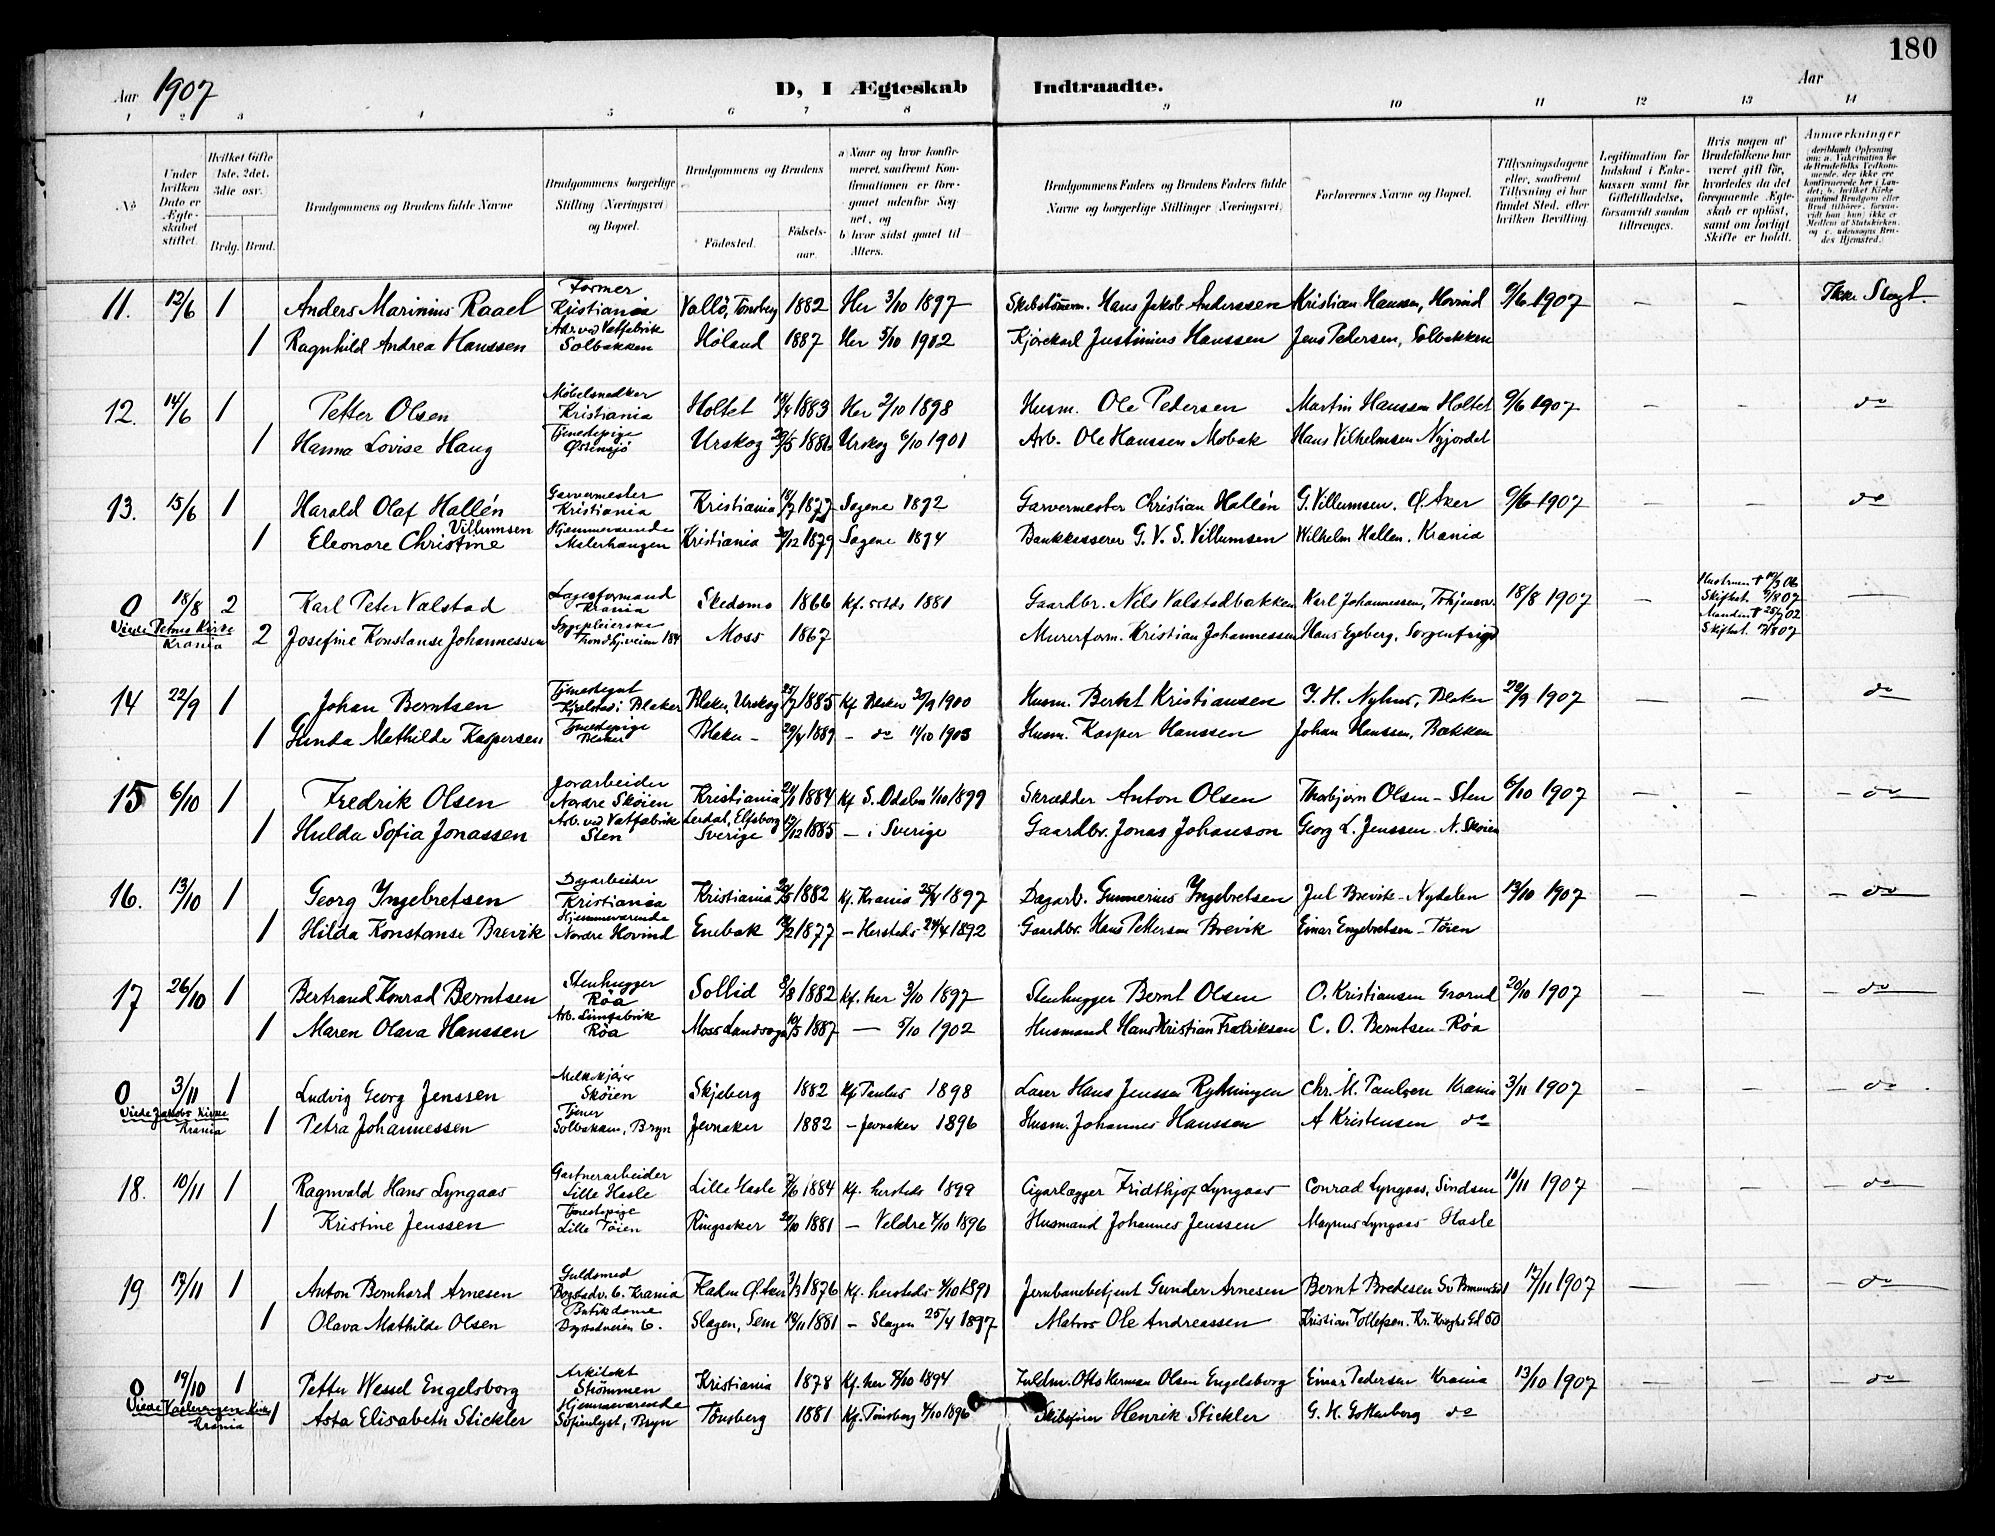 180
Aar 1907
D, I Ægteskab Indtraadte.
Aar
1 2 3 4 5 6 7 8 9 10 11 12 13 14
No
Under hvilken Dato er Ægteskabet stiftet.
Hvilket Gifte 1ste, 2det, 3die osv.
Brdg. Brud.
Brudgommens og Brudens fulde Navne
Brudgommens borgerlige Stilling (Næringsvei) og Bopæl.
Brudgommens og Brudens
Födested. Födsels-aar.
a) Naar og hvor konfirmeret, saafremt Konfirmationen er foregaaet udenfor Sognet, og
b) hvor sidst gaaet til Alters.
Brudgommens Faders og Brudens Faders fulde Navne og borgerlige Stillinger (Næringsvei)
Forlovernes Navne og Bopæl.
Tillysningsdagene eller, saafremt Tillysning ei har fundet Sted, efter hvilken Bevilling.
Legitimation for Indskud i Enkekassen samt for Giftetilladelse, forsaavidt saadan tiltrænges.
Hvis nogen af Brudefolkene har været gift før, hvorledes da det foregaaende Ægteskab er oplöst, samt om lovligt Skifte er holdt.
Anmærkninger
11. 12/6 1 Anders Marinius Raael Former Kristiania Vallö, Tönsberg 1882 Her 3/10 1897 Skibstömm. Hans Jakob Anderssen Kristian Hanssen, Hovind 9/6 1907 — — Ikke Slegt.
1 Ragnhild Andrea Hanssen Arb. ved Vatfabrik Solbakken Höland 1887 Her 5/10 1902 Kjörekarl Justinius Hanssen Jens Pedersen, Solbakken
12. 14/6 1 Petter Olsen Møbelsnedker Kristiania Holtet 1883 Her 2/10 1898 Husm. Ole Pedersen Martin Hanssen Holtet 9/6 1907 — — do
1 Hanna Lovise Haug Tjenestepige Østensjö Urskog 1881 Urskog 6/10 1901 Arb. Ole Hanssen Mobak Hans Vilhelmsen Nyjordet
13. 15/6 1 Harald Olaf Hallén Garvermester Kristiania Kristiania 1877 Sagene 1892 Garvermester Christian Hallén G. Villumsen. Ø. Aker 9/6 1907 — — do
1 Eleonore Christine Villumsen Hjemmeværende Malerhaugen Kristiania 1879 Sagene 1894 Bankkasserer G. V. S. Villumsen Wilhelm Hallen. Krania
0 18/8 2 Karl Peter Valstad Lagerformand Krania Skedsmo 1866 Kf. sstds 1881 Gaardbr. Nils Valstadbakken Karl Johannessen, 18/8 1907 — Hustruen † 06 Skiftet. 8/8 07 —
Viede Petrus Kirke Krania 2 Josefine Konstanse Johannessen Sygepleierske Trondhjemveien 184 Moss 1867 Murerform. Kristian Johannessen Hans Egeberg, Sorgenfrigd Manden † 02 Skiftet. 07
14 22/9 1 Johan Berntsen Tjenestegut Kjelstad i Blaker Blaker, Urskog 1885 Kf Blaker 30/9 1900 Husm. Bernt Kristiansen J. H. Nyhus, Blaker 22/9 1907 — — do
1 Gunda Mathilde Kaspersen Tjenestepige Blaker Blaker - 29/4 1889 - do 11/10 1903 Husm. Kasper Hanssen Johan Hanssen, Bakken
15 6/10 1 Fredrik Olsen Jordarbeider Nordre Skøien Kristiania 1884 Kf S. Odalen 1/10 1899 Skrædder Anton Olsen Thorbjörn Olsen - Sten 6/10 1907 — — do
1 Hulda Sofia Jonassen Arb. ved Vatfabrik Sten Lerdal, Elfsborg Sverige 1885 - i Sverige Gaardbr. Jonas Johanson Georg L. Jenssen - N. Skøien
16. 13/10 1 Georg Yngebretsen Dagarbeider Kristiania Kristiania 1882 Kf. Krania 25/4 1897 Dagarb. Gunnerius Yngebretsen Jul Brevik - Nydalen 13/10 1907 — — do
1 Hilda Konstanse Brevik Hjemmeværende Nordre Hovind Enebak 1877 - Hersteds 24/4 1892 Gaardbr. Hans Pettersen Brevik Einar Engebretsen - Töien
17 26/10 1 Bertrand Konrad Berntsen Stenhugger Røa Sollid 8/8 1882 Kf. her 3/10 1897 Stenhugger Bernt Olsen O. Kristiansen Grorud 20/10 1907 — — do
1 Maren Olava Hanssen Arb. Limfabrik Røa Moss Landsogn 10/5 1887 — 5/10 1902 Husmand Hans Kristian Fredriksen C. O. Berntsen - Røa
0 3/11 1 Ludvig Georg Jenssen Melkekjører Skøien Skjeberg 1882 Kf Paulus 1898 Hans Jenssen Rykningen Chr. M. Paulsen Krania 3/11 1907 — — do
Viede Jakobs Kirke Krania 1 Petra Johannessen Tjener Solbakken, Bryn Jevnaker 1882 - Jevnaker 1896 Husm. Johannes Hanssen A Kristensen do
18. 10/11 1 Ragnvald Hans Lyngaas Gartnerarbeider Lille Hasle Lille Hasle 1884 Kf. hersteds 1899 Cigarlægger Fridthjof Lyngaas Conrad Lyngaas, Sindsen 10/11 1907 — — do
1 Kristine Jenssen Tjenestepige Lille Töien Ringsaker 1881 - Veldre 4/10 1896 Husmand Johannes Jenssen Magnus Lyngaas Hasle
19 17/11 1 Anton Bernhard Arnesen Guldsmed Bogstadv. 6. Krania Kaden Ø. Aker 1876 Kf. hersteds 4/10 1891 Jernbanebetjent Gunder Arnesen Bernt Bredesen 17/11 1907 — — do
1 Olava Mathilde Olsen Butikdame Bogstadveien 6. Slagen, Sem 1881 - Slagen 25/4 1897 Matros Ole Andreassen Kristian Tollefsen. Kr. Kroghs Gd 50
0 19/10 1 Petter Wessel Engelsborg Arkitekt Strömmen Kristiania 1878 Kf. her 1894 Fuldm. Otto Herman Olsen Engelsborg Einar Pedersen Krania 13/10 1907 — — do
Viede Vaalerengens Kirke Krania 1 Asta Elisabeth Stickler Hjemmeværende Sofienlyst, Bryn Tönsberg 1881 Kf. Tönsberg 4/10 1896 Skibsfører Henrik Stickler G. H. Gotterberg do